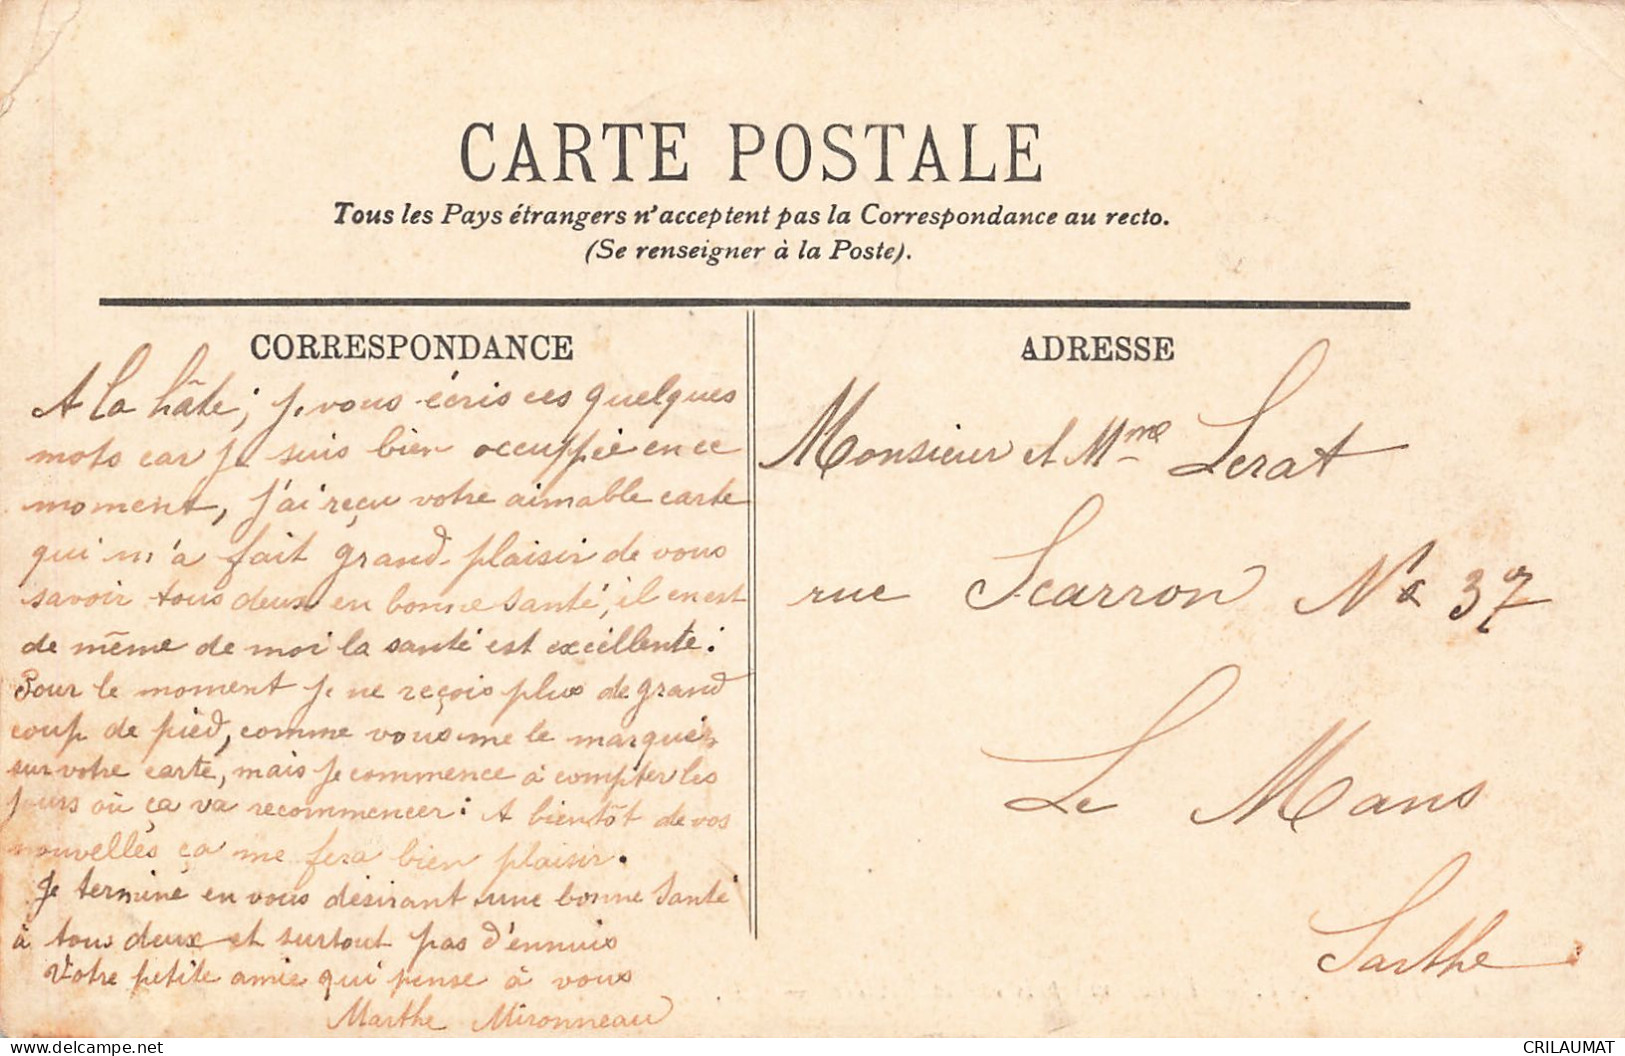 CARTE POSTALE
Tous les Pays étrangers n'acceptent pas la Correspondance au recto.
(Se renseigner à la Poste).
CORRESPONDANCE
A la hâte; je vous écris ces quelques
mots car je suis bien occuppée en ce
moment, j'ai reçu votre aimable carte
qui m'a fait grand plaisir de vous
savoir tous deux en bonne santé, il en est
de même de moi la santé est excellente.
Pour le moment je ne reçois plus de grand
coup de pied, comme vous me le marquer
sur votre carte, mais je commence à compter les
jours où ça va recommencer: A bientôt de vos
nouvelles ça me fera bien plaisir.
Je termine en vous désirant une bonne santé
à tous deux et surtout pas d'ennuis
Votre petite amie qui pense à vous
Marthe Mironneau
ADRESSE
Monsieur et Mme Lerat
rue Scarron No 37
Le Mans
Sarthe
www.delcampe.net
CRILAUMAT